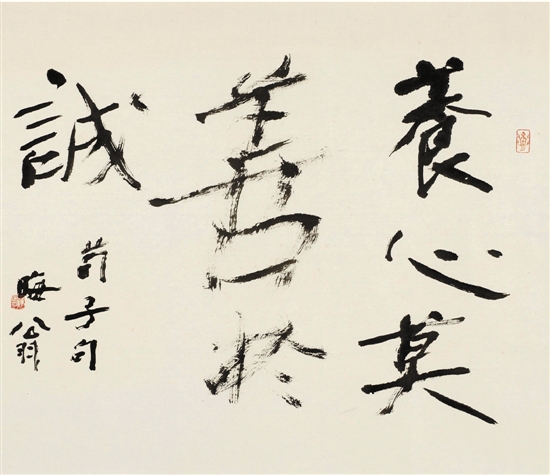 養心莫
善於
誠
荀子句
晦翁